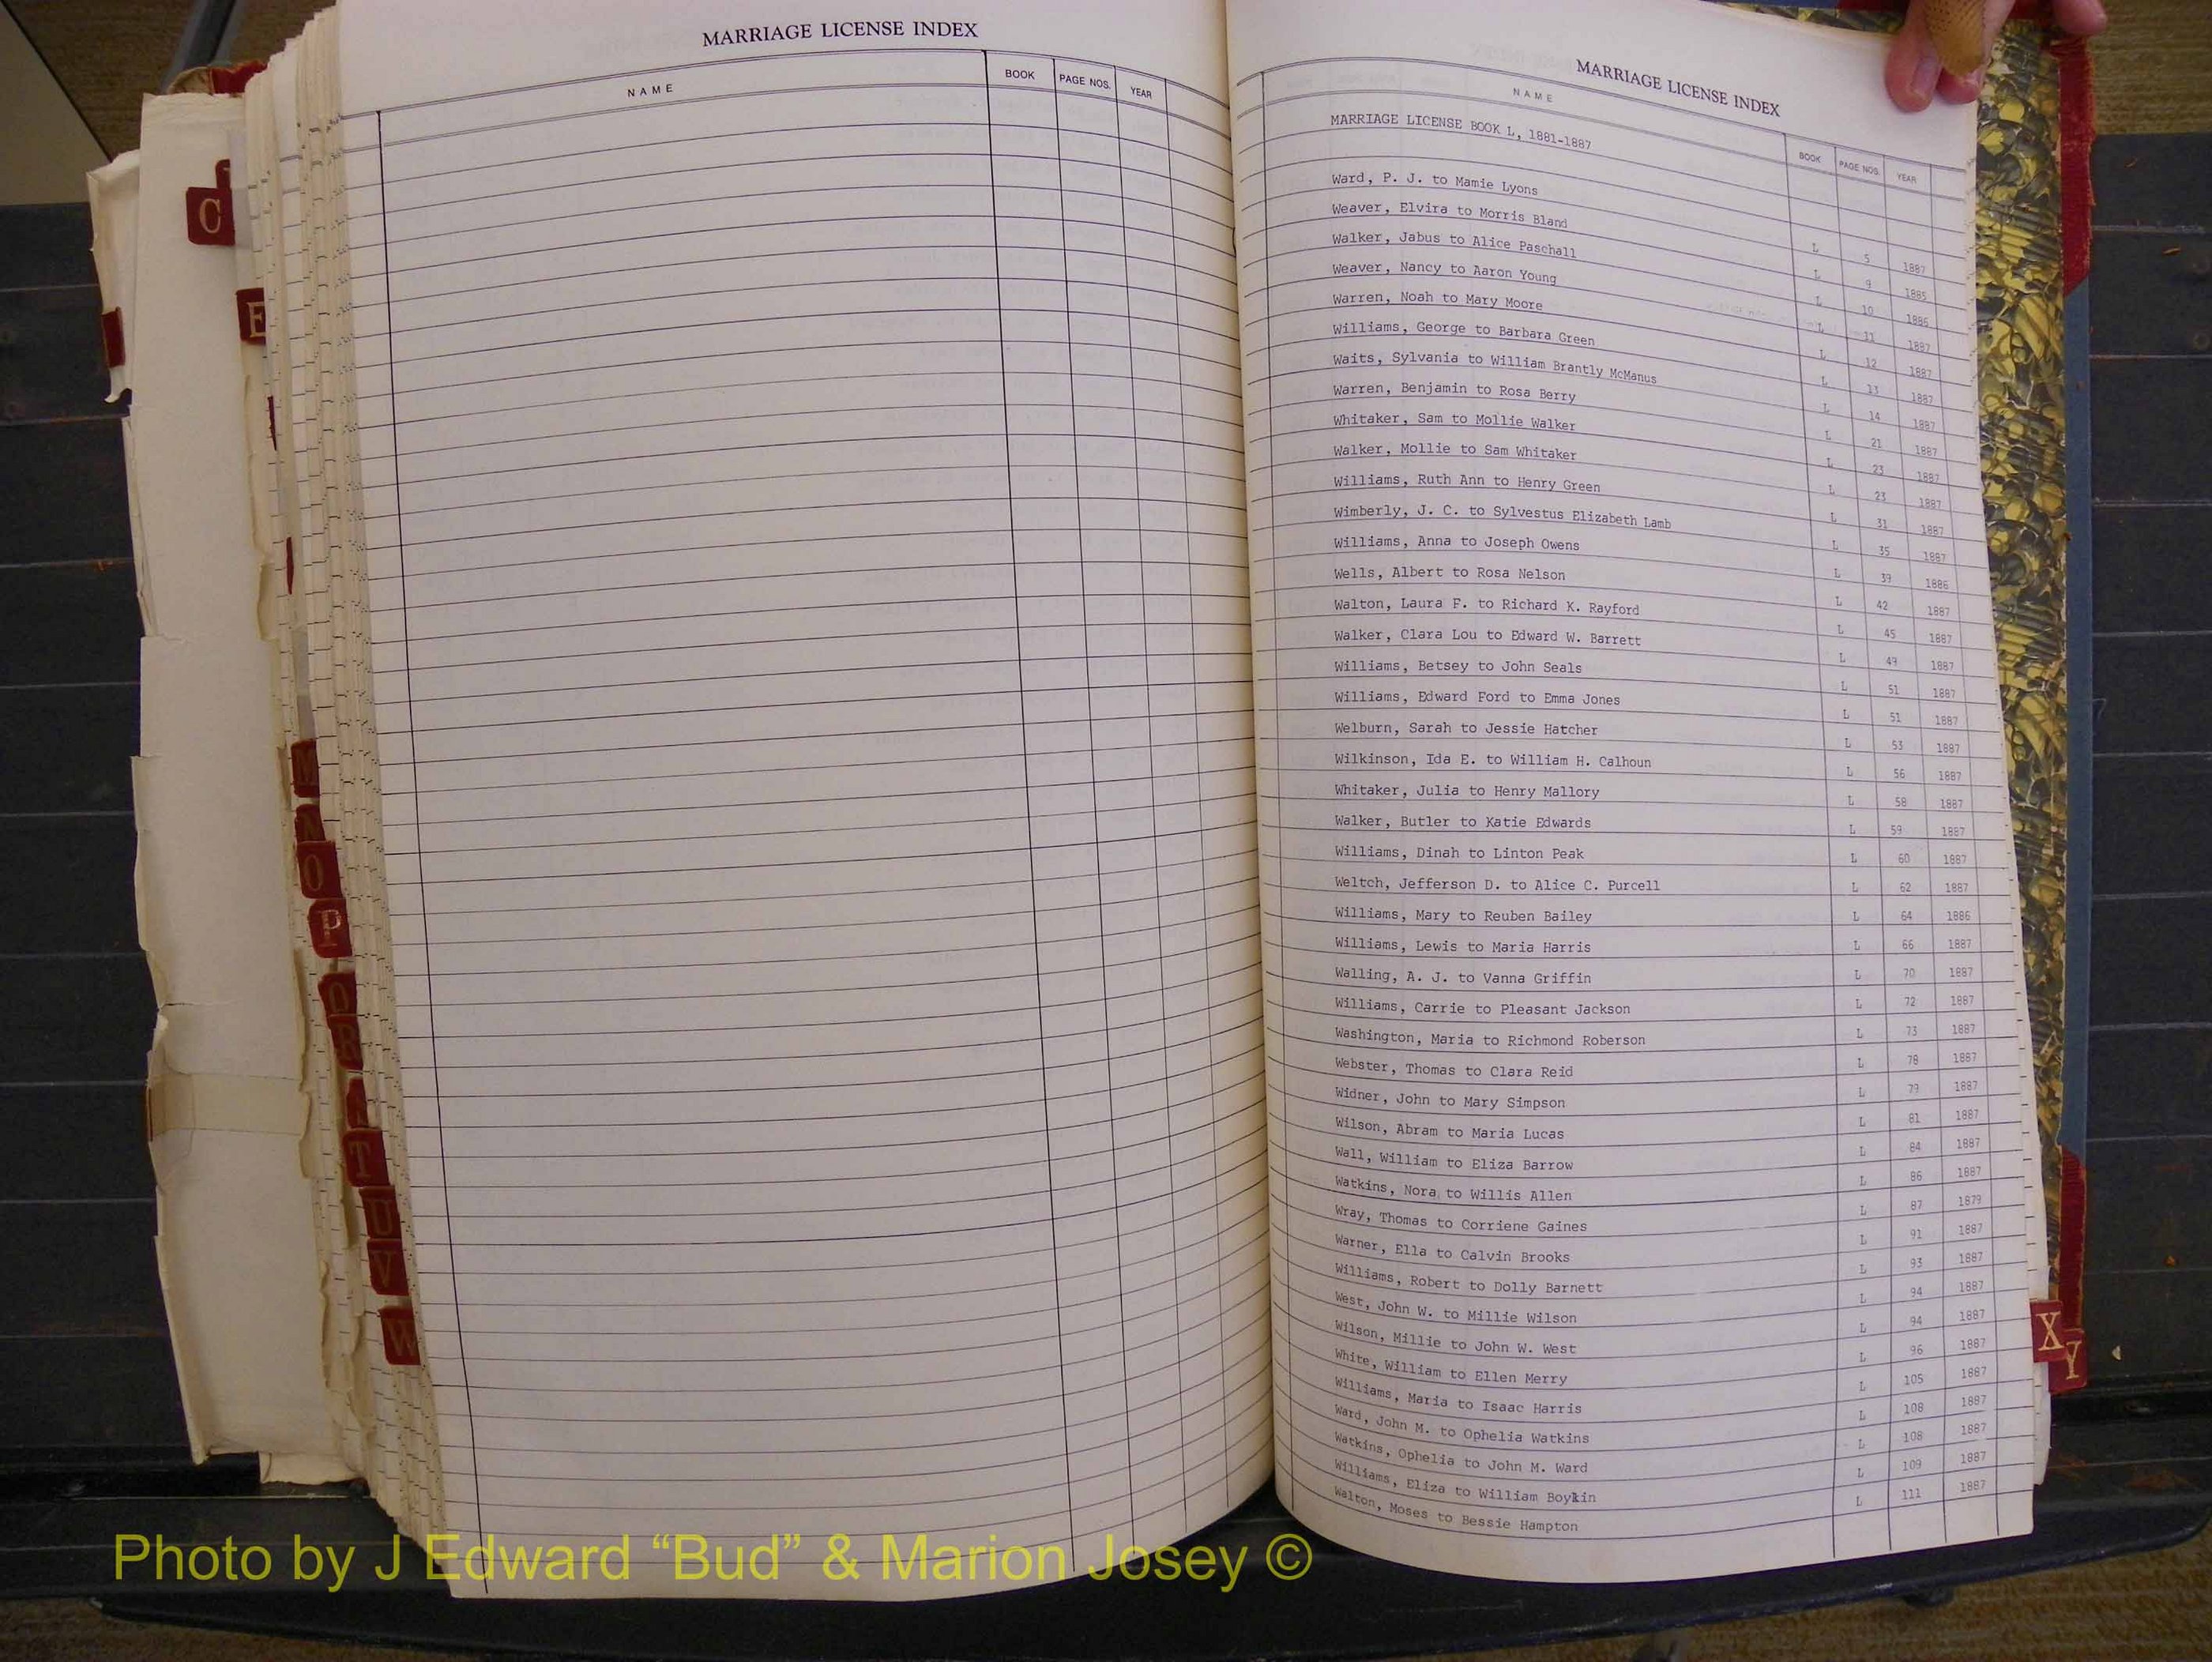 MARRIAGE LICENSE INDEX
NAME BOOK PAGE NOS. YEAR
MARRIAGE LICENSE INDEX
NAME BOOK PAGE NOS. YEAR
MARRIAGE LICENSE BOOK L, 1881-1887
Ward, P. J. to Mamie Lyons L 5 1887
Weaver, Elvira to Morris Bland L 9 1885
Walker, Jabus to Alice Paschall L 10 1886
Weaver, Nancy to Aaron Young L 11 1887
Warren, Noah to Mary Moore L 12 1887
Williams, George to Barbara Green L 13 1887
Waits, Sylvania to William Brantly McManus L 14 1887
Warren, Benjamin to Rosa Berry L 21 1887
Whitaker, Sam to Mollie Walker L 23 1887
Walker, Mollie to Sam Whitaker L 23 1887
Williams, Ruth Ann to Henry Green L 31 1887
Wimberly, J. C. to Sylvestus Elizabeth Lamb L 35 1887
Williams, Anna to Joseph Owens L 39 1886
Wells, Albert to Rosa Nelson L 42 1887
Walton, Laura F. to Richard K. Rayford L 45 1887
Walker, Clara Lou to Edward W. Barrett L 49 1887
Williams, Betsey to John Seals L 51 1887
Williams, Edward Ford to Emma Jones L 51 1887
Welburn, Sarah to Jessie Hatcher L 53 1887
Wilkinson, Ida E. to William H. Calhoun L 56 1887
Whitaker, Julia to Henry Mallory L 58 1887
Walker, Butler to Katie Edwards L 59 1887
Williams, Dinah to Linton Peak L 60 1887
Weltch, Jefferson D. to Alice C. Purcell L 62 1887
Williams, Mary to Reuben Bailey L 64 1886
Williams, Lewis to Maria Harris L 66 1887
Walling, A. J. to Vanna Griffin L 70 1887
Williams, Carrie to Pleasant Jackson L 72 1887
Washington, Maria to Richmond Roberson L 73 1887
Webster, Thomas to Clara Reid L 78 1887
Widner, John to Mary Simpson L 79 1887
Wilson, Abram to Maria Lucas L 81 1887
Wall, William to Eliza Barrow L 84 1887
Watkins, Nora to Willis Allen L 86 1887
Wray, Thomas to Corriene Gaines L 87 1879
Warner, Ella to Calvin Brooks L 91 1887
Williams, Robert to Dolly Barnett L 93 1887
West, John W. to Millie Wilson L 94 1887
Wilson, Millie to John W. West L 94 1887
White, William to Ellen Merry L 96 1887
Williams, Maria to Isaac Harris L 105 1887
Ward, John M. to Ophelia Watkins L 108 1887
Watkins, Ophelia to John M. Ward L 108 1887
Williams, Eliza to William Boykin L 109 1887
Walton, Moses to Bessie Hampton L 111 1887
C
E
M
N
O
P
Q
R
T
U
V
W
X
Y
Photo by J Edward “Bud” & Marion Josey ©